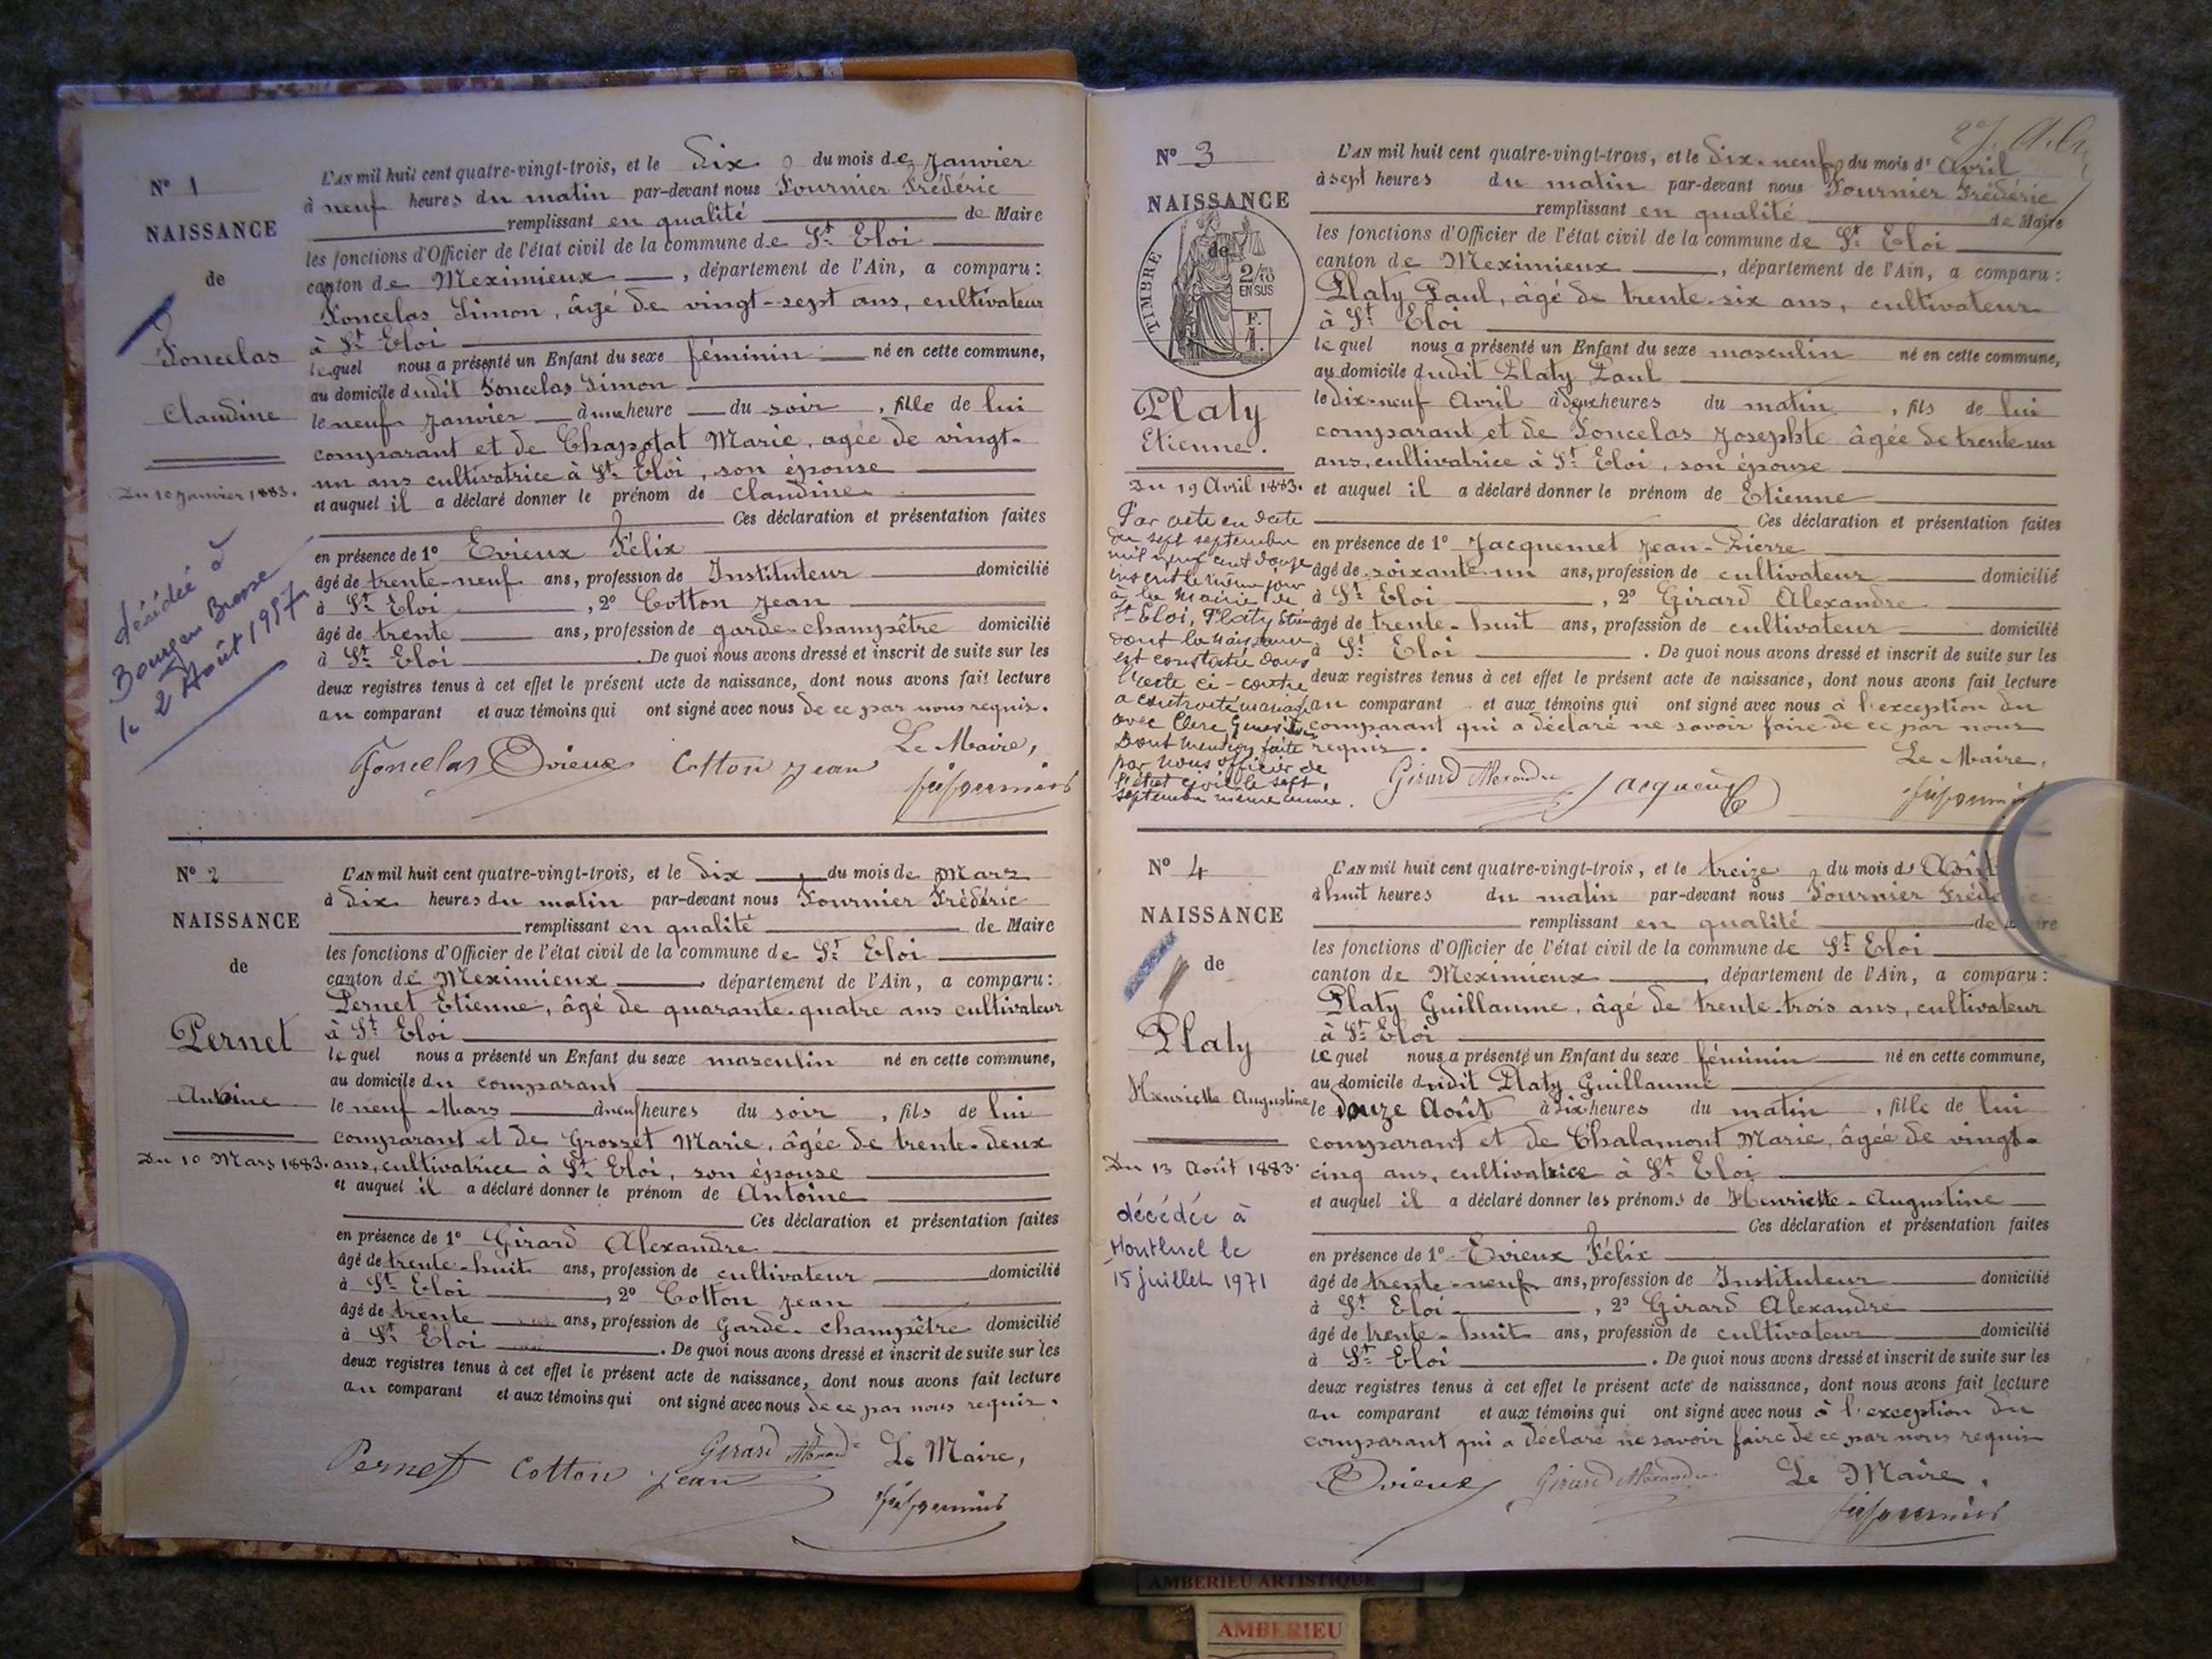 N° 1
NAISSANCE
de
Foncelas
Claudine
Du 10 Janvier 1883.
décédée à
Bourg en Bresse
le 2 Août 1957
L'AN mil huit cent quatre-vingt-trois, et le dix du mois de Janvier
à neuf heures du matin par-devant nous Fournier Frédéric
remplissant en qualité de Maire
les fonctions d'Officier de l'état civil de la commune de St Eloi
canton de Meximieux, département de l'Ain, a comparu:
Foncelas Simon, âgé de vingt-sept ans, cultivateur
à St Eloi
lequel nous a présenté un Enfant du sexe féminin né en cette commune,
au domicile dudit Foncelas Simon
le neuf Janvier à une heure du soir, fille de lui
comparant et de Chapotat Marie, agée de vingt-
un ans cultivatrice à St Eloi, son épouse
et auquel il a déclaré donner le prénom de Claudine
Ces déclaration et présentation faites
en présence de 1° Evieux Félix
âgé de trente-neuf ans, profession de Instituteur domicilié
à St Eloi, 2° Cotton Jean
âgé de trente ans, profession de garde-champêtre domicilié
à St Eloi. De quoi nous avons dressé et inscrit de suite sur les
deux registres tenus à cet effet le présent acte de naissance, dont nous avons fait lecture
au comparant et aux témoins qui ont signé avec nous de ce par nous requis.
Le Maire,
Foncelas Evieux Cotton Jean
N° 2
NAISSANCE
de
Pernet
Antoine
Du 10 Mars 1883.
L'AN mil huit cent quatre-vingt-trois, et le dix du mois de Mars
à dix heures du matin par-devant nous Fournier Frédéric
remplissant en qualité de Maire
les fonctions d'Officier de l'état civil de la commune de St Eloi
canton de Meximieux, département de l'Ain, a comparu:
Pernet Etienne, âgé de quarante-quatre ans cultivateur
à St Eloi
lequel nous a présenté un Enfant du sexe masculin né en cette commune,
au domicile du comparant
le neuf Mars à neuf heures du soir, fils de lui
comparant et de Grosset Marie, âgée de trente-deux
ans, cultivatrice à St Eloi, son épouse
et auquel il a déclaré donner le prénom de Antoine
Ces déclaration et présentation faites
en présence de 1° Girard Alexandre
âgé de trente-huit ans, profession de cultivateur domicilié
à St Eloi, 2° Cotton Jean
âgé de trente ans, profession de Garde-champêtre domicilié
à St Eloi. De quoi nous avons dressé et inscrit de suite sur les
deux registres tenus à cet effet le présent acte de naissance, dont nous avons fait lecture
au comparant et aux témoins qui ont signé avec nous de ce par nous requis.
Pernet Cotton Jean Girard Le Maire,
N° 3
NAISSANCE
de
TIMBRE
2/10 EN SUS
Platy
Etienne.
Du 19 Avril 1883.
Par acte en date
du sept septembre
mil neuf cent douze
inscrit le même jour
à la Mairie de
St Eloi, Platy Etienne
dont la naissance
est constatée dans
l'acte ci-contre
a contracté mariage
avec Clerc
Dont mention faite
par nous officier de
l'état civil le sept
septembre même année.
L'AN mil huit cent quatre-vingt-trois, et le dix-neuf du mois d'Avril
à sept heures du matin par-devant nous Fournier Frédéric
remplissant en qualité de Maire
les fonctions d'Officier de l'état civil de la commune de St Eloi
canton de Meximieux, département de l'Ain, a comparu:
Platy Paul, âgé de trente-six ans, cultivateur
à St Eloi
lequel nous a présenté un Enfant du sexe masculin né en cette commune,
au domicile dudit Platy Paul
le dix-neuf Avril à deux heures du matin, fils de lui
comparant et de Foncelas Josephte âgée de trente un
ans, cultivatrice à St Eloi, son épouse
et auquel il a déclaré donner le prénom de Etienne
Ces déclaration et présentation faites
en présence de 1° Jacquemet Jean-Pierre
âgé de soixante-un ans, profession de cultivateur domicilié
à St Eloi, 2° Girard Alexandre
âgé de trente-huit ans, profession de cultivateur domicilié
à St Eloi. De quoi nous avons dressé et inscrit de suite sur les
deux registres tenus à cet effet le présent acte de naissance, dont nous avons fait lecture
au comparant et aux témoins qui ont signé avec nous à l'exception du
comparant qui a déclaré ne savoir faire de ce par nous
requis.
Le Maire,
Girard Alexandre
N° 4
NAISSANCE
de
Platy
Henriette Augustine
Du 13 Août 1883.
décédée à
Montluel le
15 juillet 1971
L'AN mil huit cent quatre-vingt-trois, et le treize du mois d'Août
à huit heures du matin par-devant nous Fournier
remplissant en qualité
les fonctions d'Officier de l'état civil de la commune de St Eloi
canton de Meximieux, département de l'Ain, a comparu:
Platy Guillaume, âgé de trente-trois ans, cultivateur
à St Eloi
Lequel nous a présenté un Enfant du sexe féminin né en cette commune,
au domicile dudit Platy Guillaume
le douze Août à dix heures du matin, fille de lui
comparant et de Chalamont Marie, âgée de vingt-
cinq ans, cultivatrice à St Eloi
et auquel il a déclaré donner les prénoms de Henriette-Augustine
Ces déclaration et présentation faites
en présence de 1° Evieux Félix
âgé de trente-neuf ans, profession de Instituteur domicilié
à St Eloi, 2° Girard Alexandre
âgé de trente-huit ans, profession de cultivateur domicilié
à St Eloi. De quoi nous avons dressé et inscrit de suite sur les
deux registres tenus à cet effet le présent acte de naissance, dont nous avons fait lecture
au comparant et aux témoins qui ont signé avec nous à l'exception du
comparant qui a déclaré ne savoir faire de ce par nous requis
Evieux Girard Alexandre Le Maire,
AMBERIEU ARTISTIQUE
AMBERIEU